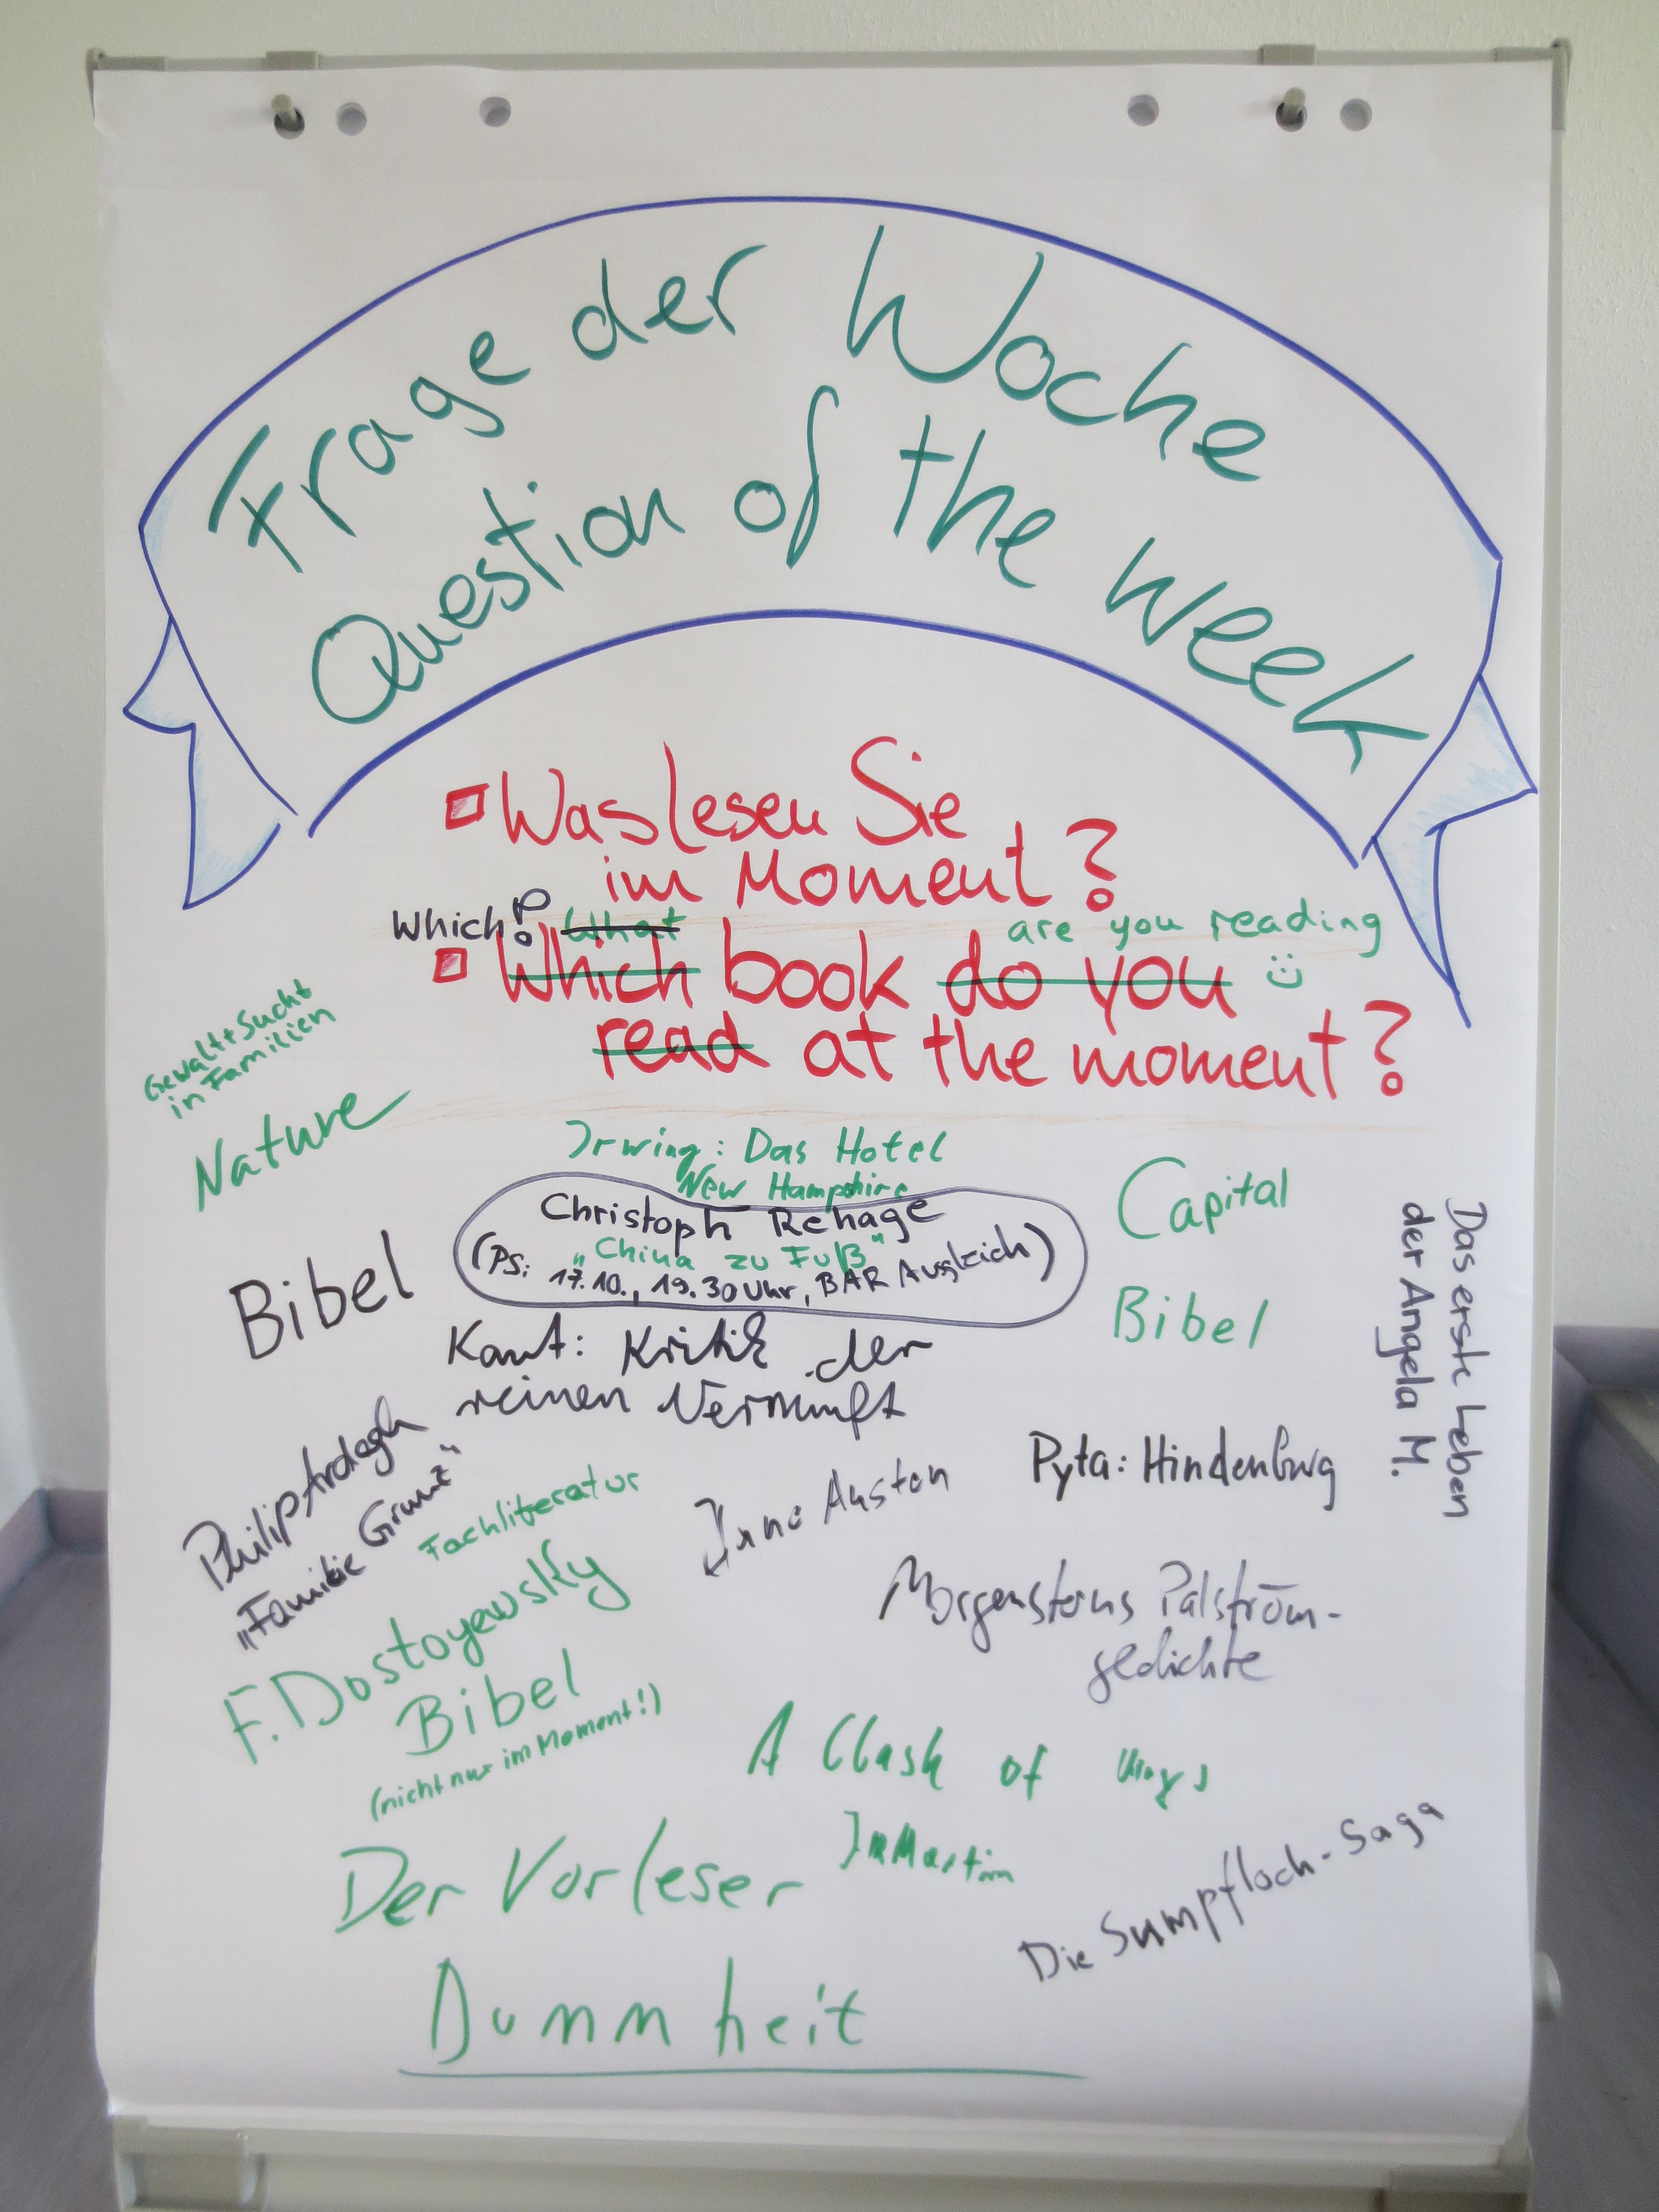 Frage der Woche
Question of the week
Was lesen Sie
im Moment?
Which? What are you reading
Which book do you
read at the moment?
Gewalt + Sucht
in Familien
Nature
Irwing: Das Hotel
New Hampshire
Capital
Das erste Leben
der Angela M.
Christoph Rehage
„China zu Fuß"
(PS: 17.10., 19.30 Uhr, BAR Ausgleich)
Bibel
Bibel
Kant: Kritik der
reinen Vernunft
Philip Ardagh
„Familie Grunz"
Pyta: Hindenburg
Fachliteratur
Jane Austen
F. Dostoyewsky
Morgensterns Palström-
gedichte
Bibel
(nicht nur im Moment!)
A Clash of Kings
Martin
Der Vorleser
Die Sumpfloch-Saga
Dummheit